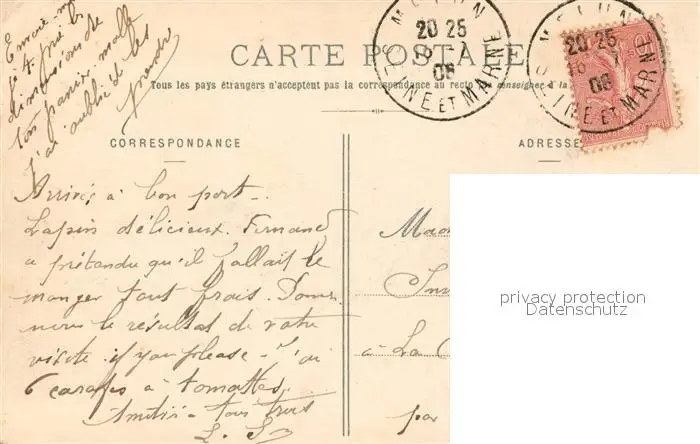 Envoie moi
dimensions de
ton panier malle
j'ai oublié de les
prendre
CARTE POSTALE
Tous les pays étrangers n'acceptent pas la correspondance au recto (se renseigner à la
MELUN
20 25
06
SEINE ET MARNE
MELUN
20 25
06
SEINE ET MARNE
CORRESPONDANCE
ADRESSE
Arrivés à bon port.
Lapin délicieux. Fernand
a prétendu qu'il fallait le
manger tout frais. Donnez
nous le résultat de votre
visite if you please. J'ai
6 carafes à tomattes.
Amitiés à tous trois
L. S
Mad
à La
par
privacy protection
Datenschutz